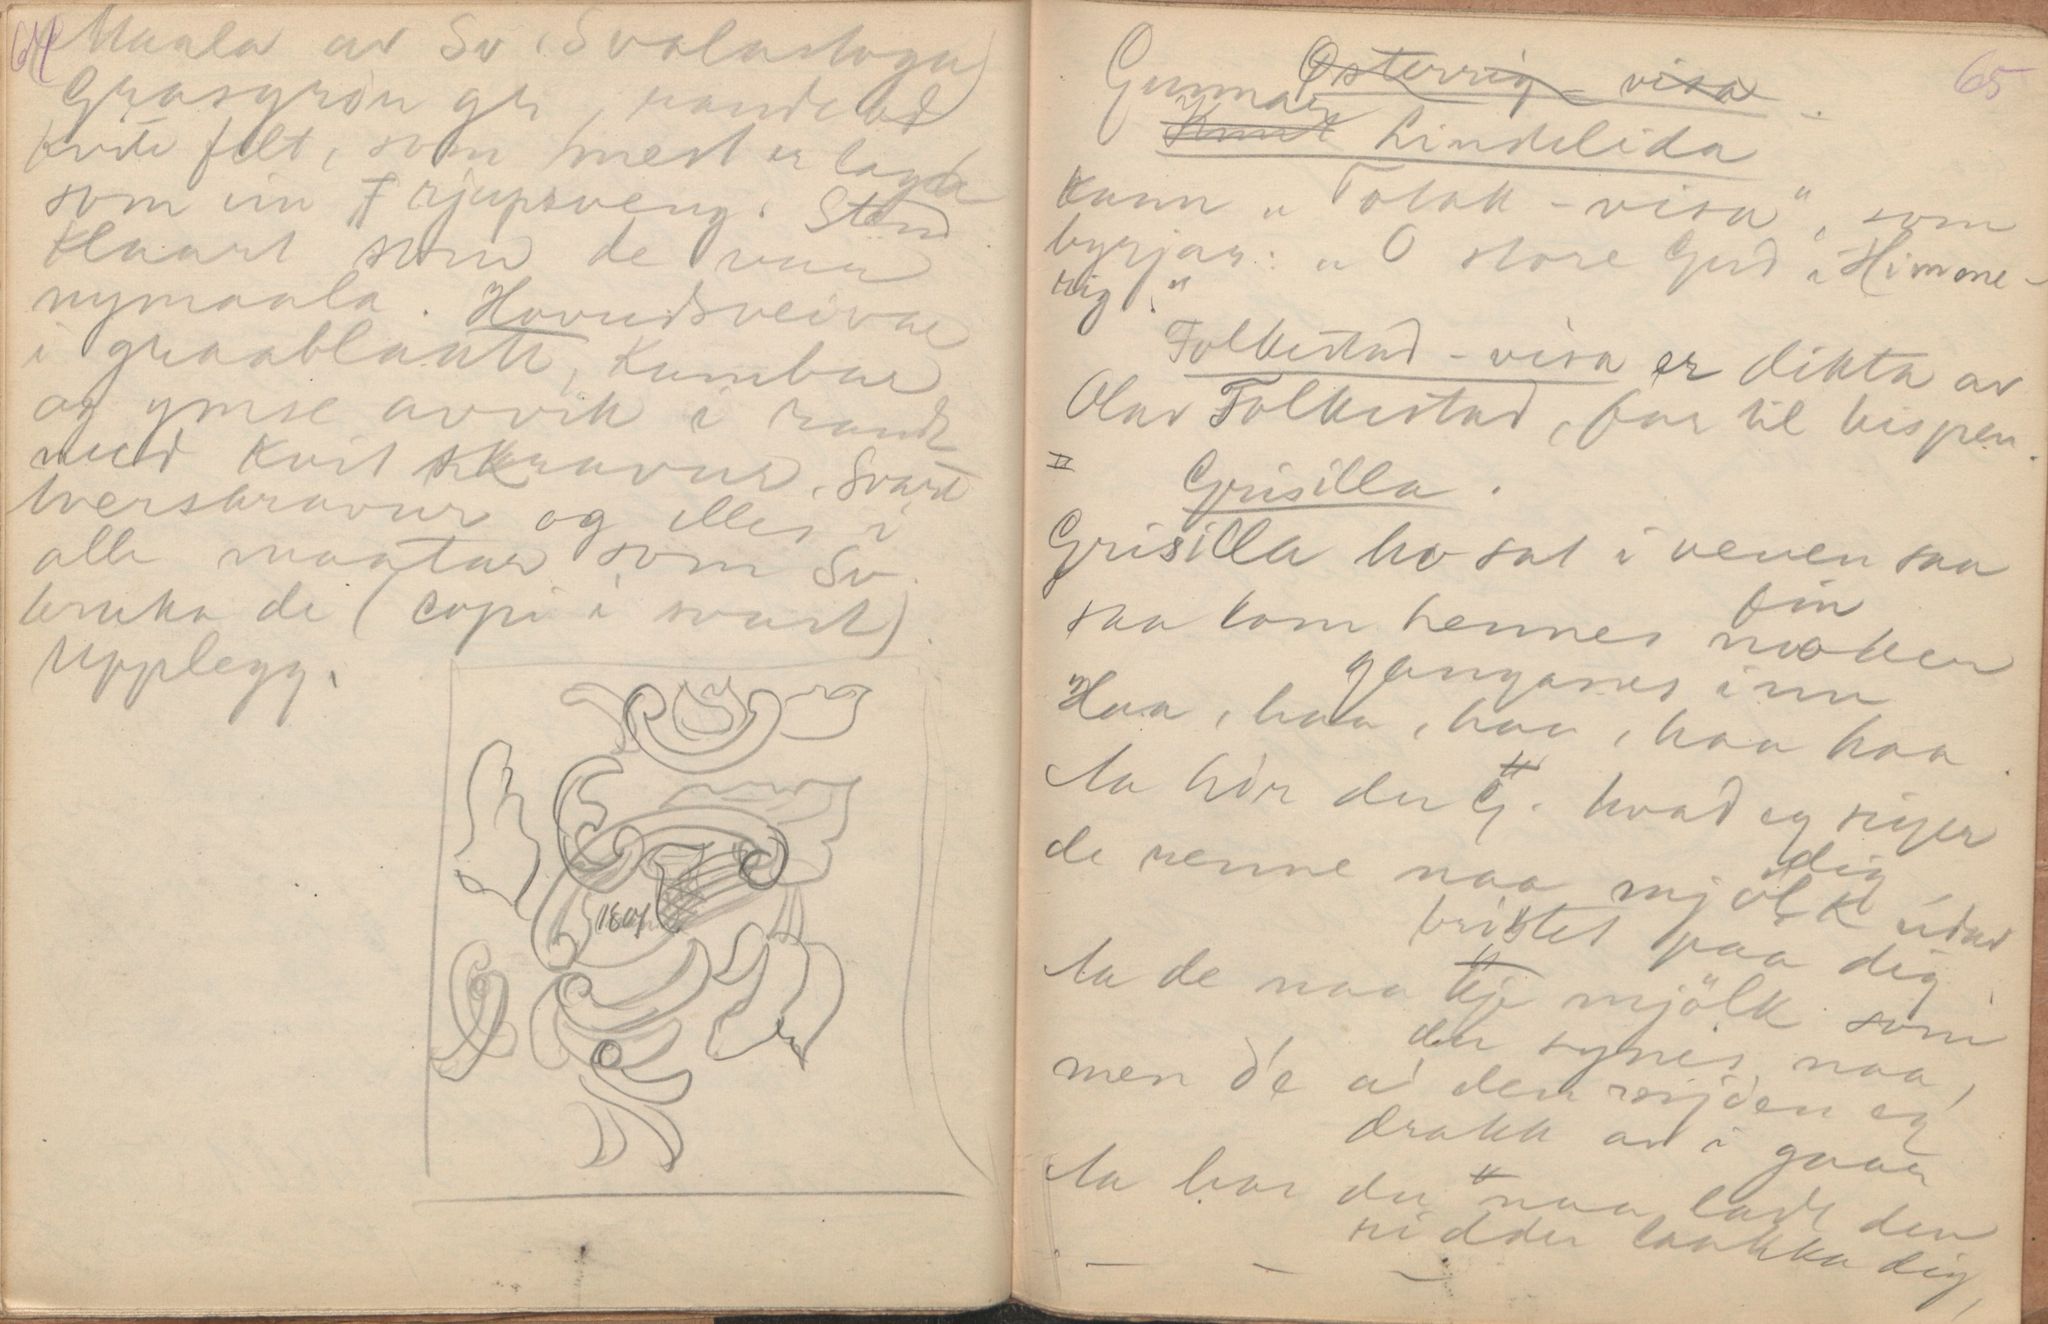 64
Maala av Sv (Svalastoga)
Grasgrön gr, randa ad
kvite felt, som mest er lagde
som ein rjupsveng. Stend
klaart som de var
nymaala. Hovudsveivar
i graablaatt, Kumbar
og ymse avvik i raudt
med kvit skravur. Svart
tverskravur og elles i
alle maatar som Sv.
bruka de (copi i svart).
Upplegg.
1801
65
Österrig-visa
Gunnar
Knut Lindelida
Kann „Folak-visa“, som
byrjar: „O store Gud i Himme-
rig“
Folkestad-visa er dikta av
Olav Folkestad, far til bispen.
II
Grisilla.
Grisilla ho sat i veven saa
fin
saa kom hennes moker
ganganes inn
Haa, haa, haa, haa haa
Aa hör du G. hvad eg siger
dig
de renne naa mjölk utav
bristet paa dig
Aa de naa kje mjölk som
du synes naa,
men d'e a' den mjöen eg
drakk av i gaar
Aa har du naa ladt den
ridder laakka dig,